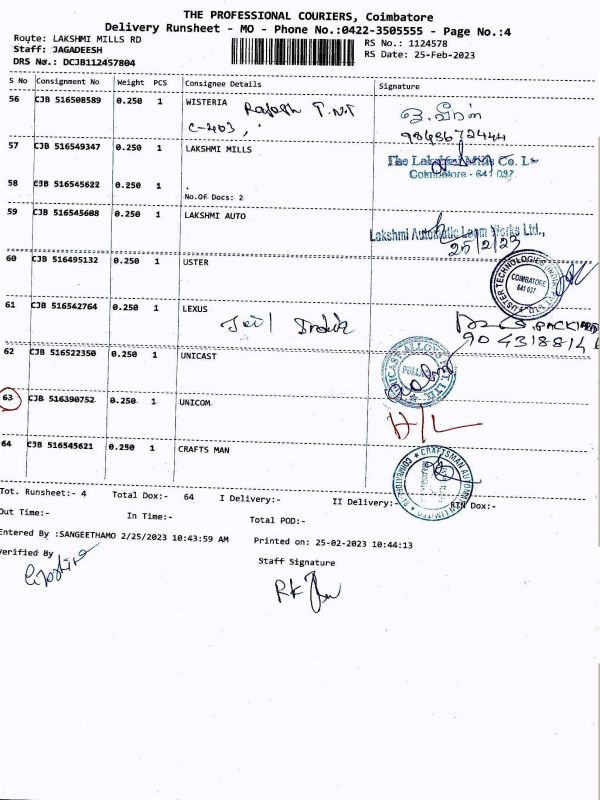 THE PROFESSIONAL COURIERS, Coimbatore
Delivery Runsheet - MO - Phone No.:0422-3505555 - Page No.:4
Route: LAKSHMI MILLS RD
Staff: JAGADEESH
DRS No.: DCJB112457804
RS No.: 1124578
RS Date: 25-Feb-2023
S No Consignment No Weight PCS Consignee Details Signature
56 CJB 516508589 0.250 1 WISTERIA Rajesh T.N.T
C-403,
9848672444
57 CJB 516549347 0.250 1 LAKSHMI MILLS
The Lakshmi Mills Co. L
Coimbatore - 641 037
58 CJB 516545622 0.250 1 .
No.Of Docs: 2
59 CJB 516545608 0.250 1 LAKSHMI AUTO
Lakshmi Automatic Loom Works Ltd.,
25/2/23
60 CJB 516495132 0.250 1 USTER
USTER TECHNOLOGIES (INDIA) PVT LTD
COIMBATORE
641 037
61 CJB 516542764 0.250 1 LEXUS
904318814
62 CJB 516522350 0.250 1 UNICAST
UNICAST ALLOYS
63 CJB 516390752 0.250 1 UNICOM
H/L
64 CJB 516545621 0.250 1 CRAFTS MAN
CRAFTSMAN AUTOMATION LIMITED
COIMBATORE
Tot. Runsheet:- 4 Total Dox:- 64 I Delivery:- II Delivery:- RTN Dox:-
Out Time:- In Time:- Total POD:-
Entered By :SANGEETHAMO 2/25/2023 10:43:59 AM Printed on: 25-02-2023 10:44:13
Verified By
Staff Signature